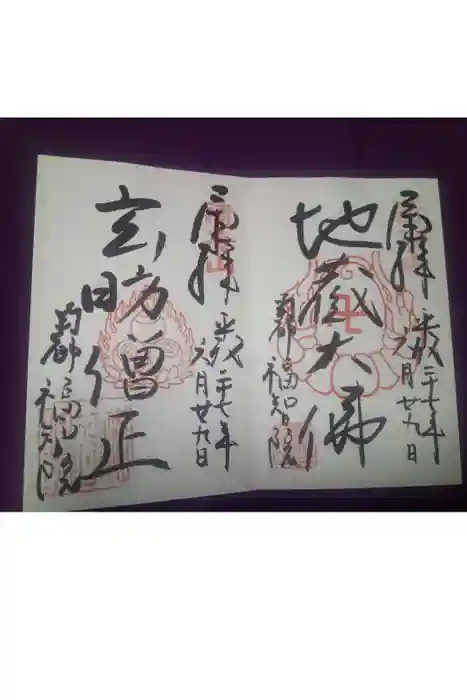 奉拝
平成二十七年
六月廿九日
地蔵大佛
南都福智院
奉拝
平成二十七年
六月廿九日
玄昉僧正
南都福智院